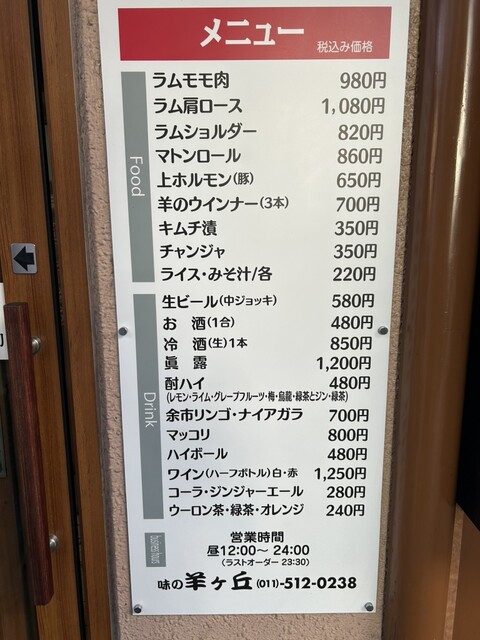 メニュー 税込み価格
Food
ラムモモ肉 980円
ラム肩ロース 1,080円
ラムショルダー 820円
マトンロール 860円
上ホルモン(豚) 650円
羊のウインナー(3本) 700円
キムチ漬 350円
チャンジャ 350円
ライス・みそ汁/各 220円
Drink
生ビール(中ジョッキ) 580円
お 酒(1合) 480円
冷 酒(生)1本 850円
眞 露 1,200円
酎ハイ 480円
(レモン・ライム・グレープフルーツ・梅・烏龍・緑茶とジン・緑茶)
余市リンゴ・ナイアガラ 700円
マッコリ 800円
ハイボール 480円
ワイン(ハーフボトル)白・赤 1,250円
コーラ・ジンジャーエール 280円
ウーロン茶・緑茶・オレンジ 240円
business hours
営業時間
昼12:00〜 24:00
(ラストオーダー 23:30)
味の羊ヶ丘 (011)-512-0238